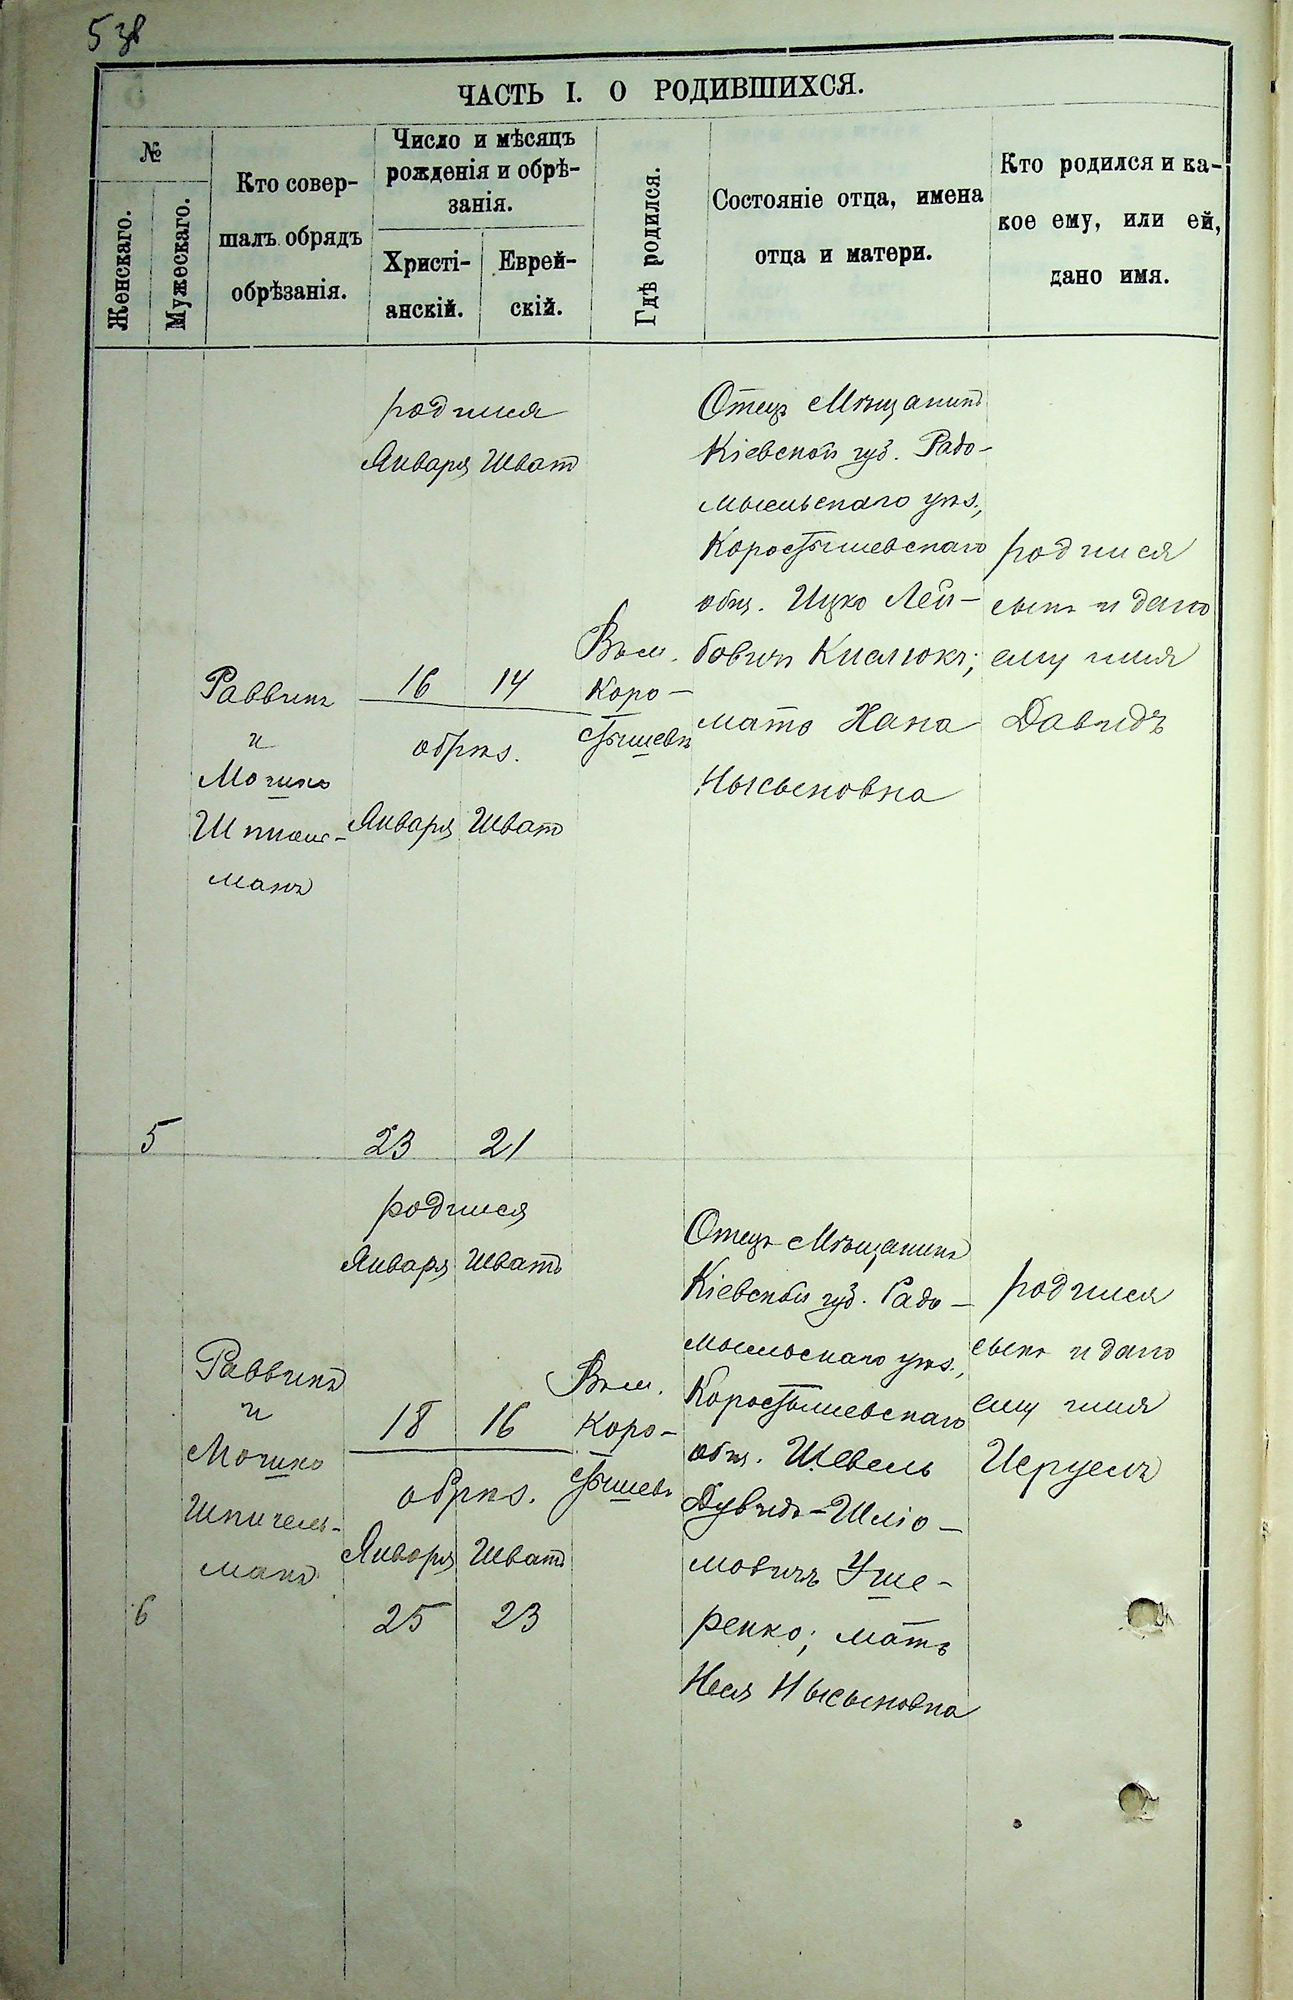 5 зв
ЧАСТЬ I. О РОДИВШИХСЯ.
№
Женскаго.
Мужескаго.
Кто совер-
шалъ обрядъ
обрѣзанія.
Число и мѣсяцъ
рожденія и обрѣ-
занія.
Христі-
анскій.
Еврей-
скій.
Гдѣ родился.
Состояніе отца, имена
отца и матери.
Кто родился и ка-
кое ему, или ей,
дано имя.
5
Раввинъ
и
Мошко
ман
родился
Января Шват
16 14
обрѣз.
Января Шват
23 21
Въ м.
Коро-
стышевѣ
Отецъ Мѣщанинъ
Кіевской губ. Радо-
мысльскаго уѣз.,
Коростышевскаго
общ. Ицко Лей-
бовичъ Кислюкъ;
мать Хана
Нысыновна
родился
сынъ и дано
ему имя
Давидъ
6
Раввинъ
и
Мошко
Шпигель-
манъ
родился
Января Шватъ
18 16
обрѣз.
Января Шватъ
25 23
Въ м.
Коро-
стышевѣ
Отецъ Мѣщанинъ
Кіевской губ. Радо-
мысльскаго уѣз.,
Коростышевскаго
общ. Шевель
Дувидъ-Шліо-
мовичъ Уше-
ренко; мать
Неся Нысыновна
родился
сынъ и дано
ему имя
Исруель